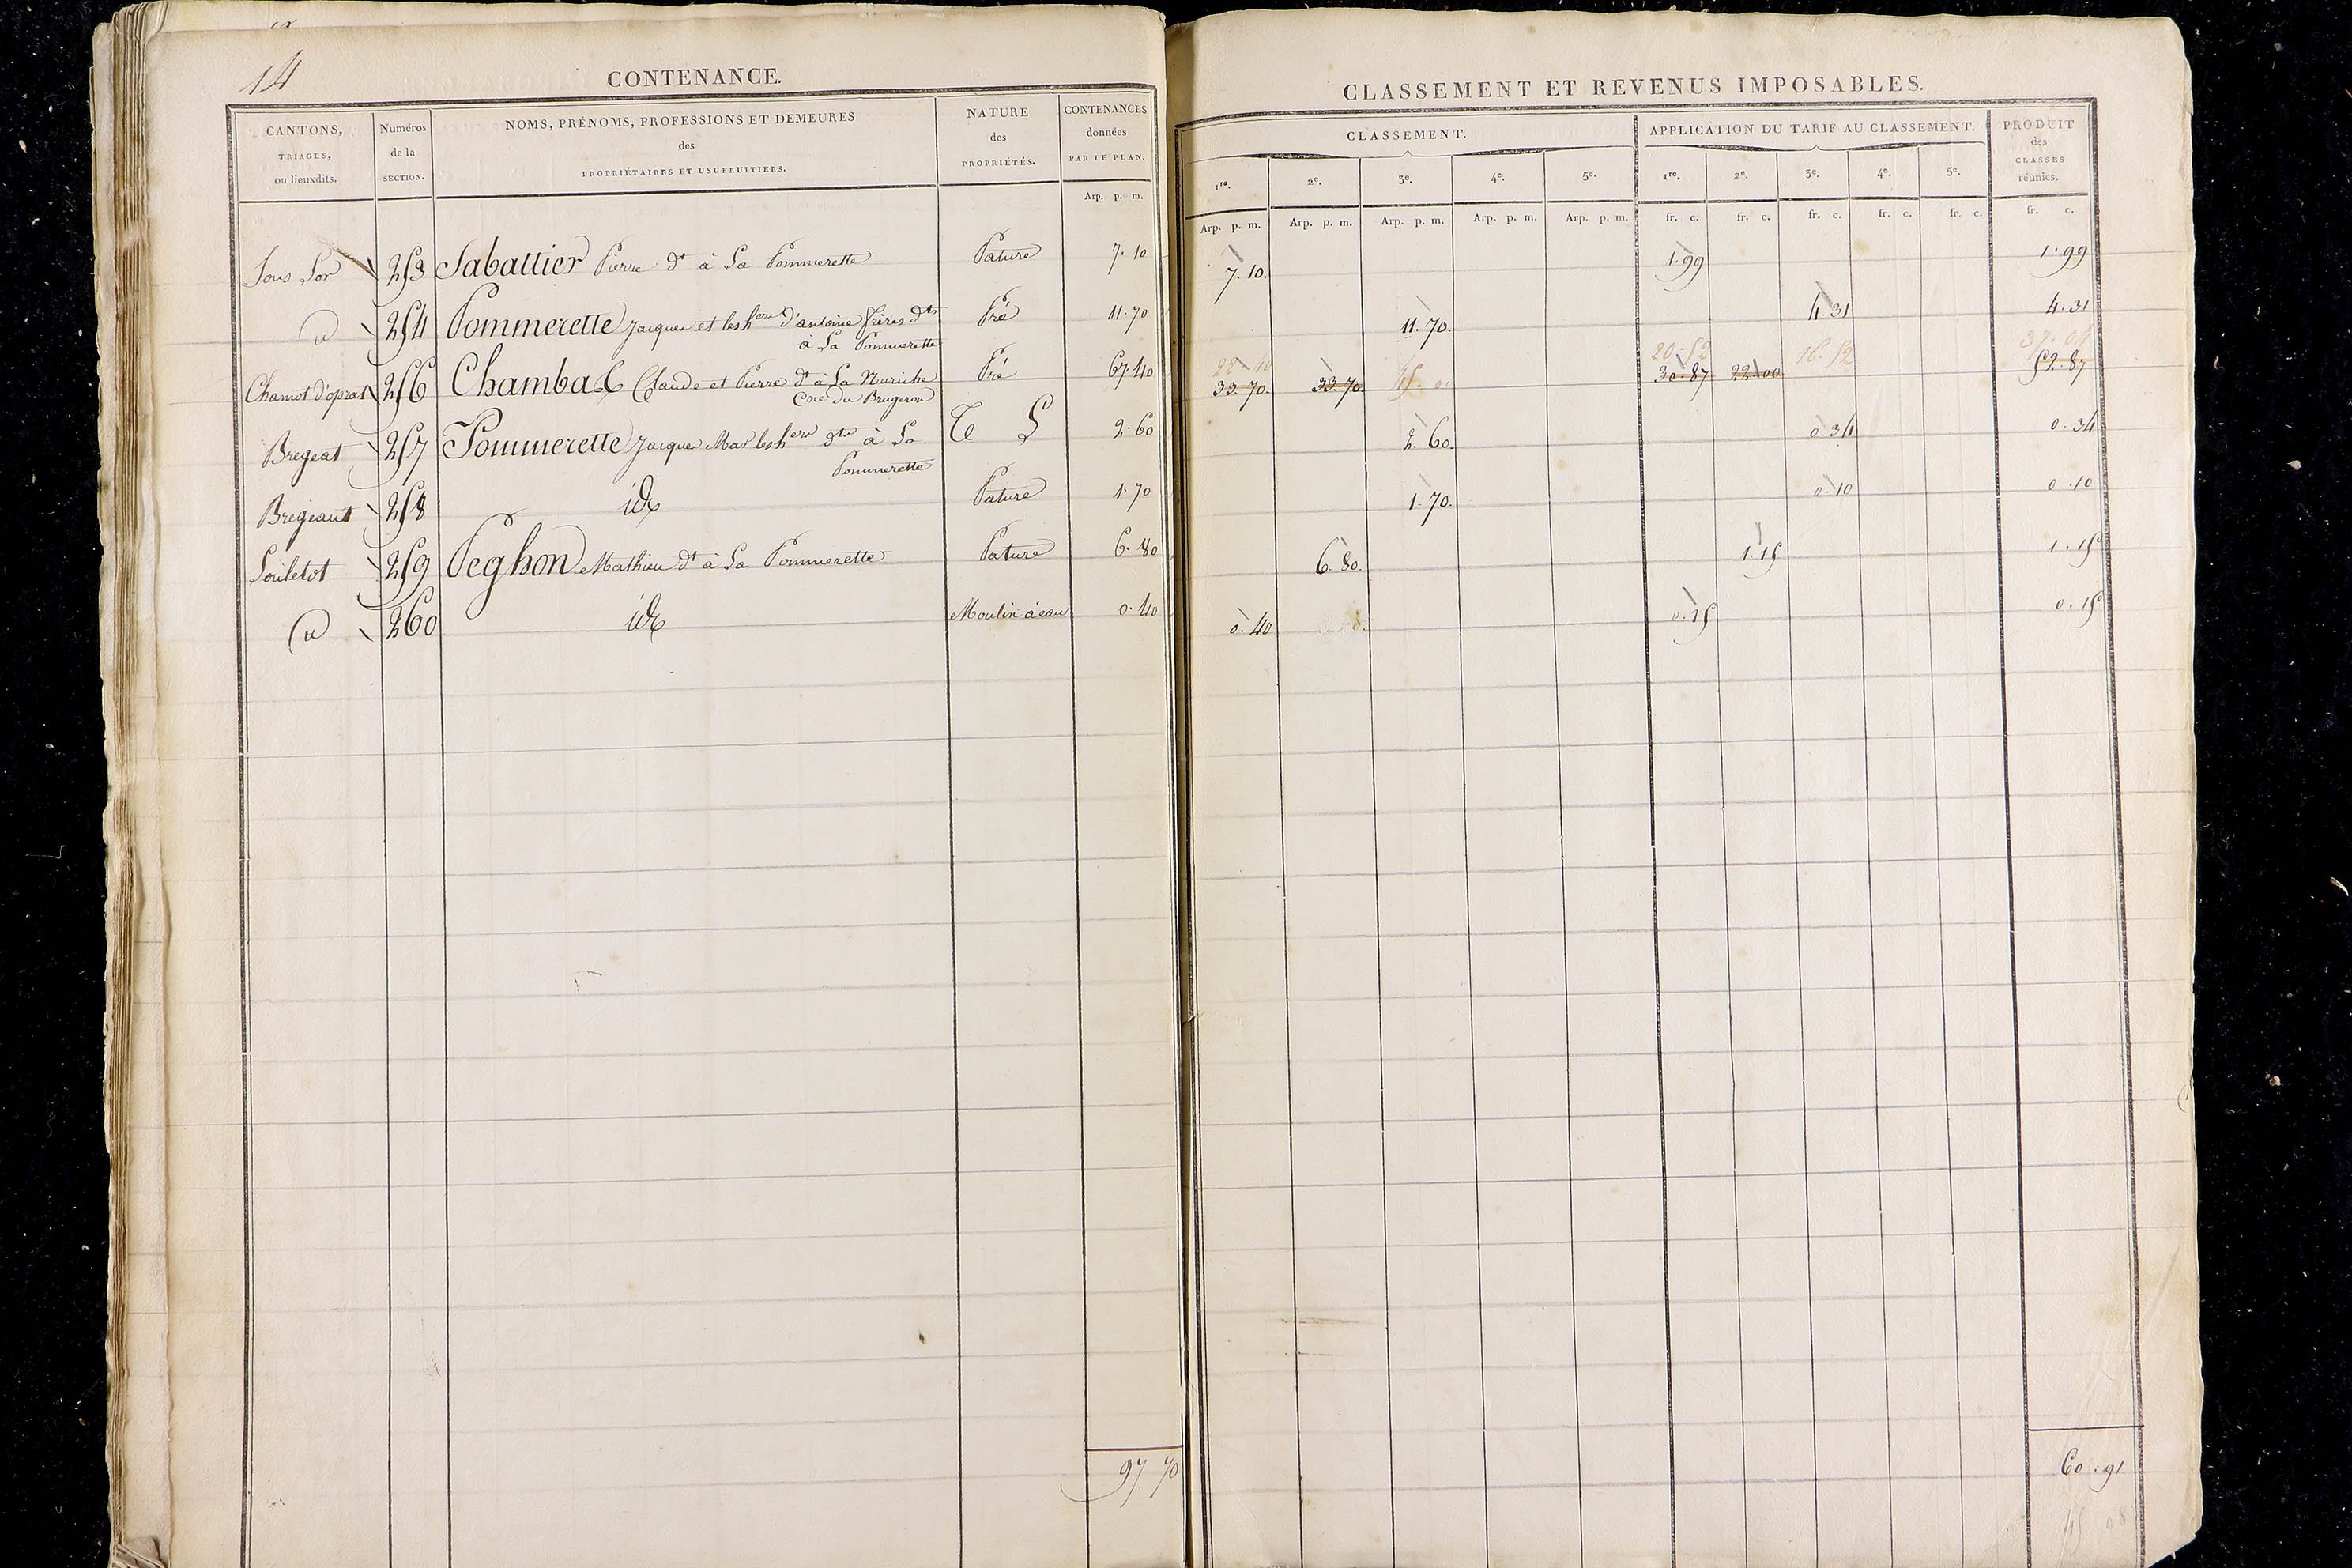 14
CONTENANCE.
CANTONS, TRIAGES, ou lieuxdits.
Numéros de la SECTION.
NOMS, PRÉNOMS, PROFESSIONS ET DEMEURES des PROPRIÉTAIRES ET USUFRUITIERS.
NATURE des PROPRIÉTÉS.
CONTENANCES données PAR LE PLAN.
Arp. p. m.
Sous Lor 253 Sabattier Pierre dt à La Pommerette Pature 7. 10
d 254 Pommerette Jacques et les hers d'antoine frères dts Pré 11. 70
à La Pommerette
Chamot d'oprat 256 Chambas Claude et Pierre dt à La Nuriche Pré 67. 40
Cne du Brugeron
Bregeat 257 Pommerette Jacques Mas les hers dts à La T L 2. 60
Pommerette
Bregeaut 258 id Pature 1. 70
Souletot 259 Peghon Mathieu dt à La Pommerette Pature 6. 80
d 260 id Moulin à eau 0. 40
97 70
CLASSEMENT ET REVENUS IMPOSABLES.
CLASSEMENT.
APPLICATION DU TARIF AU CLASSEMENT.
PRODUIT des CLASSES réunies.
1re. 2e. 3e. 4e. 5e. 1re. 2e. 3e. 4e. 5e.
Arp. p. m. Arp. p. m. Arp. p. m. Arp. p. m. Arp. p. m. fr. c. fr. c. fr. c. fr. c. fr. c. fr. c.
7. 10. 1. 99 1. 99
11. 70. 4. 31 4. 31
20. 52 16. 52 37. 04
33. 70. 33. 70 45. 30. 87 22. 00 52. 87
2. 60. 0. 34 0. 34
1. 70. 0. 10 0. 10
6. 80. 1. 15 1. 15
0. 40 0. 15 0. 15
60. 91
45 08